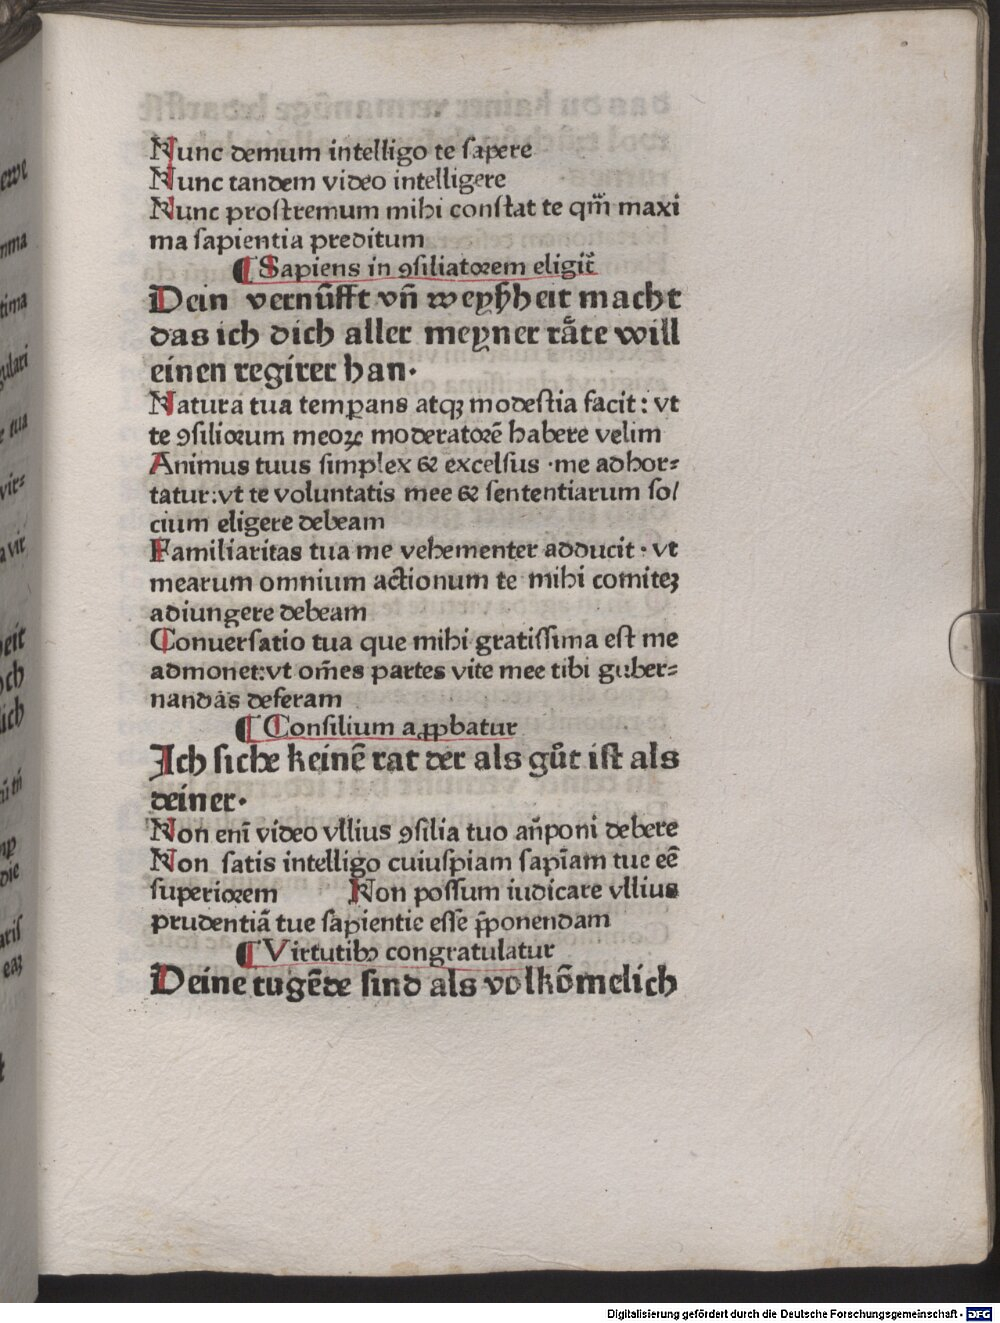 Nunc demum intelligo te sapere
Nunc tandem video intelligere
Nunc proſtremum mihi conſtat te qm̄ maxi
ma ſapientia preditum
¶ Sapiens in ꝯſiliatoꝛem eligit᷑
Dein vernūfft vn̄ weyſzheit macht
das ich dich aller meyner raͤte will
einen regirer han·
Natura tua temꝑans atqꝫ modeſtia facit : vt
te ꝯſilioꝛum meoꝝ moderatoꝛē habere velim
Animus tuus ſimplex & excelſus ·me adhor⸗
tatur:vt te voluntatis mee & ſententiarum ſo/
cium eligere debeam
Familiaritas tua me vehementer adducit · vt
mearum omnium actionum te mihi comiteꝫ
adiungere debeam
Conuerſatio tua que mihi gratiſſima eſt me
admonet:vt om̄es partes vite mee tibi guber⸗
nandas deferam
¶ Conſilium aꝓpbatur
Ich ſiche keinē rat der als guͦt iſt als
deiner·
Non eni̅ video vllius ꝯſilia tuo an̄poni debere
Non ſatis intelligo cuiuſpiam ſapi̅am tue eē
ſuperioꝛem Non poſſum iudicare vllius
prudentiā tue ſapientie eſſe p̄ponendam
¶ Virtutibꝫ congratulatur
Deine tugēde ſind als volkōmelich
Digitalisierung gefördert durch die Deutsche Forschungsgemeinschaft - DFG